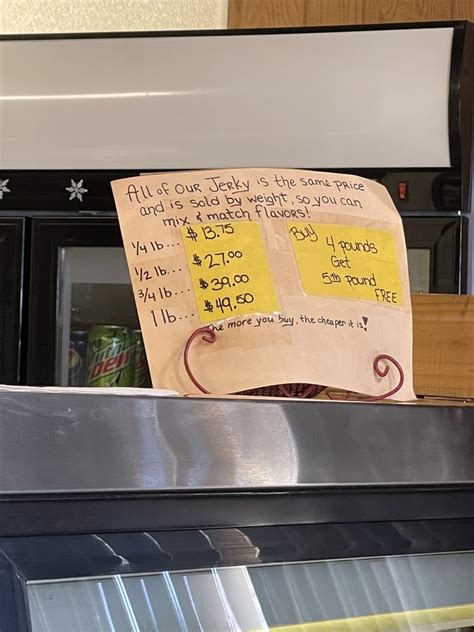 All of our Jerky is the same price
and is sold by weight, so you can
mix & match flavors!
1/4 lb... $13.75
1/2 lb... $27.00
3/4 lb... $39.00
1 lb... $49.50
Buy
4 pounds
Get
5th pound
FREE
The more you buy, the cheaper it is!
DEW